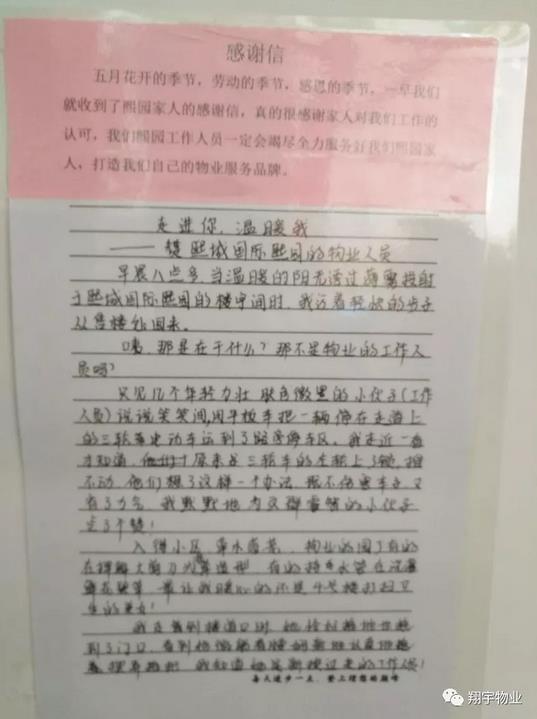 感谢信
五月花开的季节，劳动的季节，感恩的季节，一早我们
就收到了熙园家人的感谢信，真的很感谢家人对我们工作的
认可，我们熙园工作人员一定会竭尽全力服务好我们熙园家
人，打造我们自己的物业服务品牌。
走进你，温暖我
——赞熙城国际熙园的物业人员
早晨八点多，当温暖的阳光透过薄雾投射
于熙城国际熙园的楼宇间时，我迈着轻快的步子
从售楼处回来。
咦，那是在干什么？那不是物业的工作人
员吗？
只见几个年轻力壮 肤色微黑的小伙子（工作
人员）说说笑笑间，用平板车把一辆停在走道上
的三轮电动车运到了路旁停车区。我走近一看
才知道，原来是三轮车的车轮上了锁，推
不动，他们想了这样一个办法，既不伤害车子，又
省了力气，我默默地为这群睿智的小伙子
点了个赞！
入得小区，物业的园丁有的
在挥舞大剪刀为草造型，有的持水管在浇灌
鲜花绿草，最让我暖心的还是4号楼打扫卫
生的美女！
到了门口，看到她
我知道她是新换过来的工作人员！
每天进步一点，登上理想的巅峰
翔宇物业